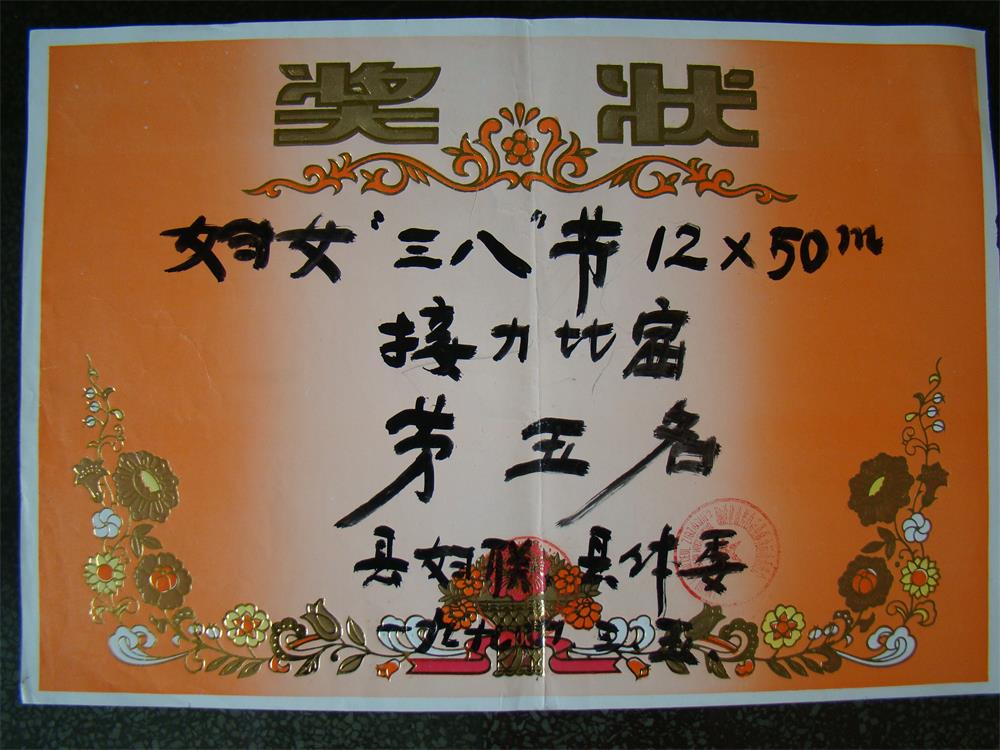 奖状
妇女"三八"节12×50m
接力比富
第五名
县妇联、县体委
一九九